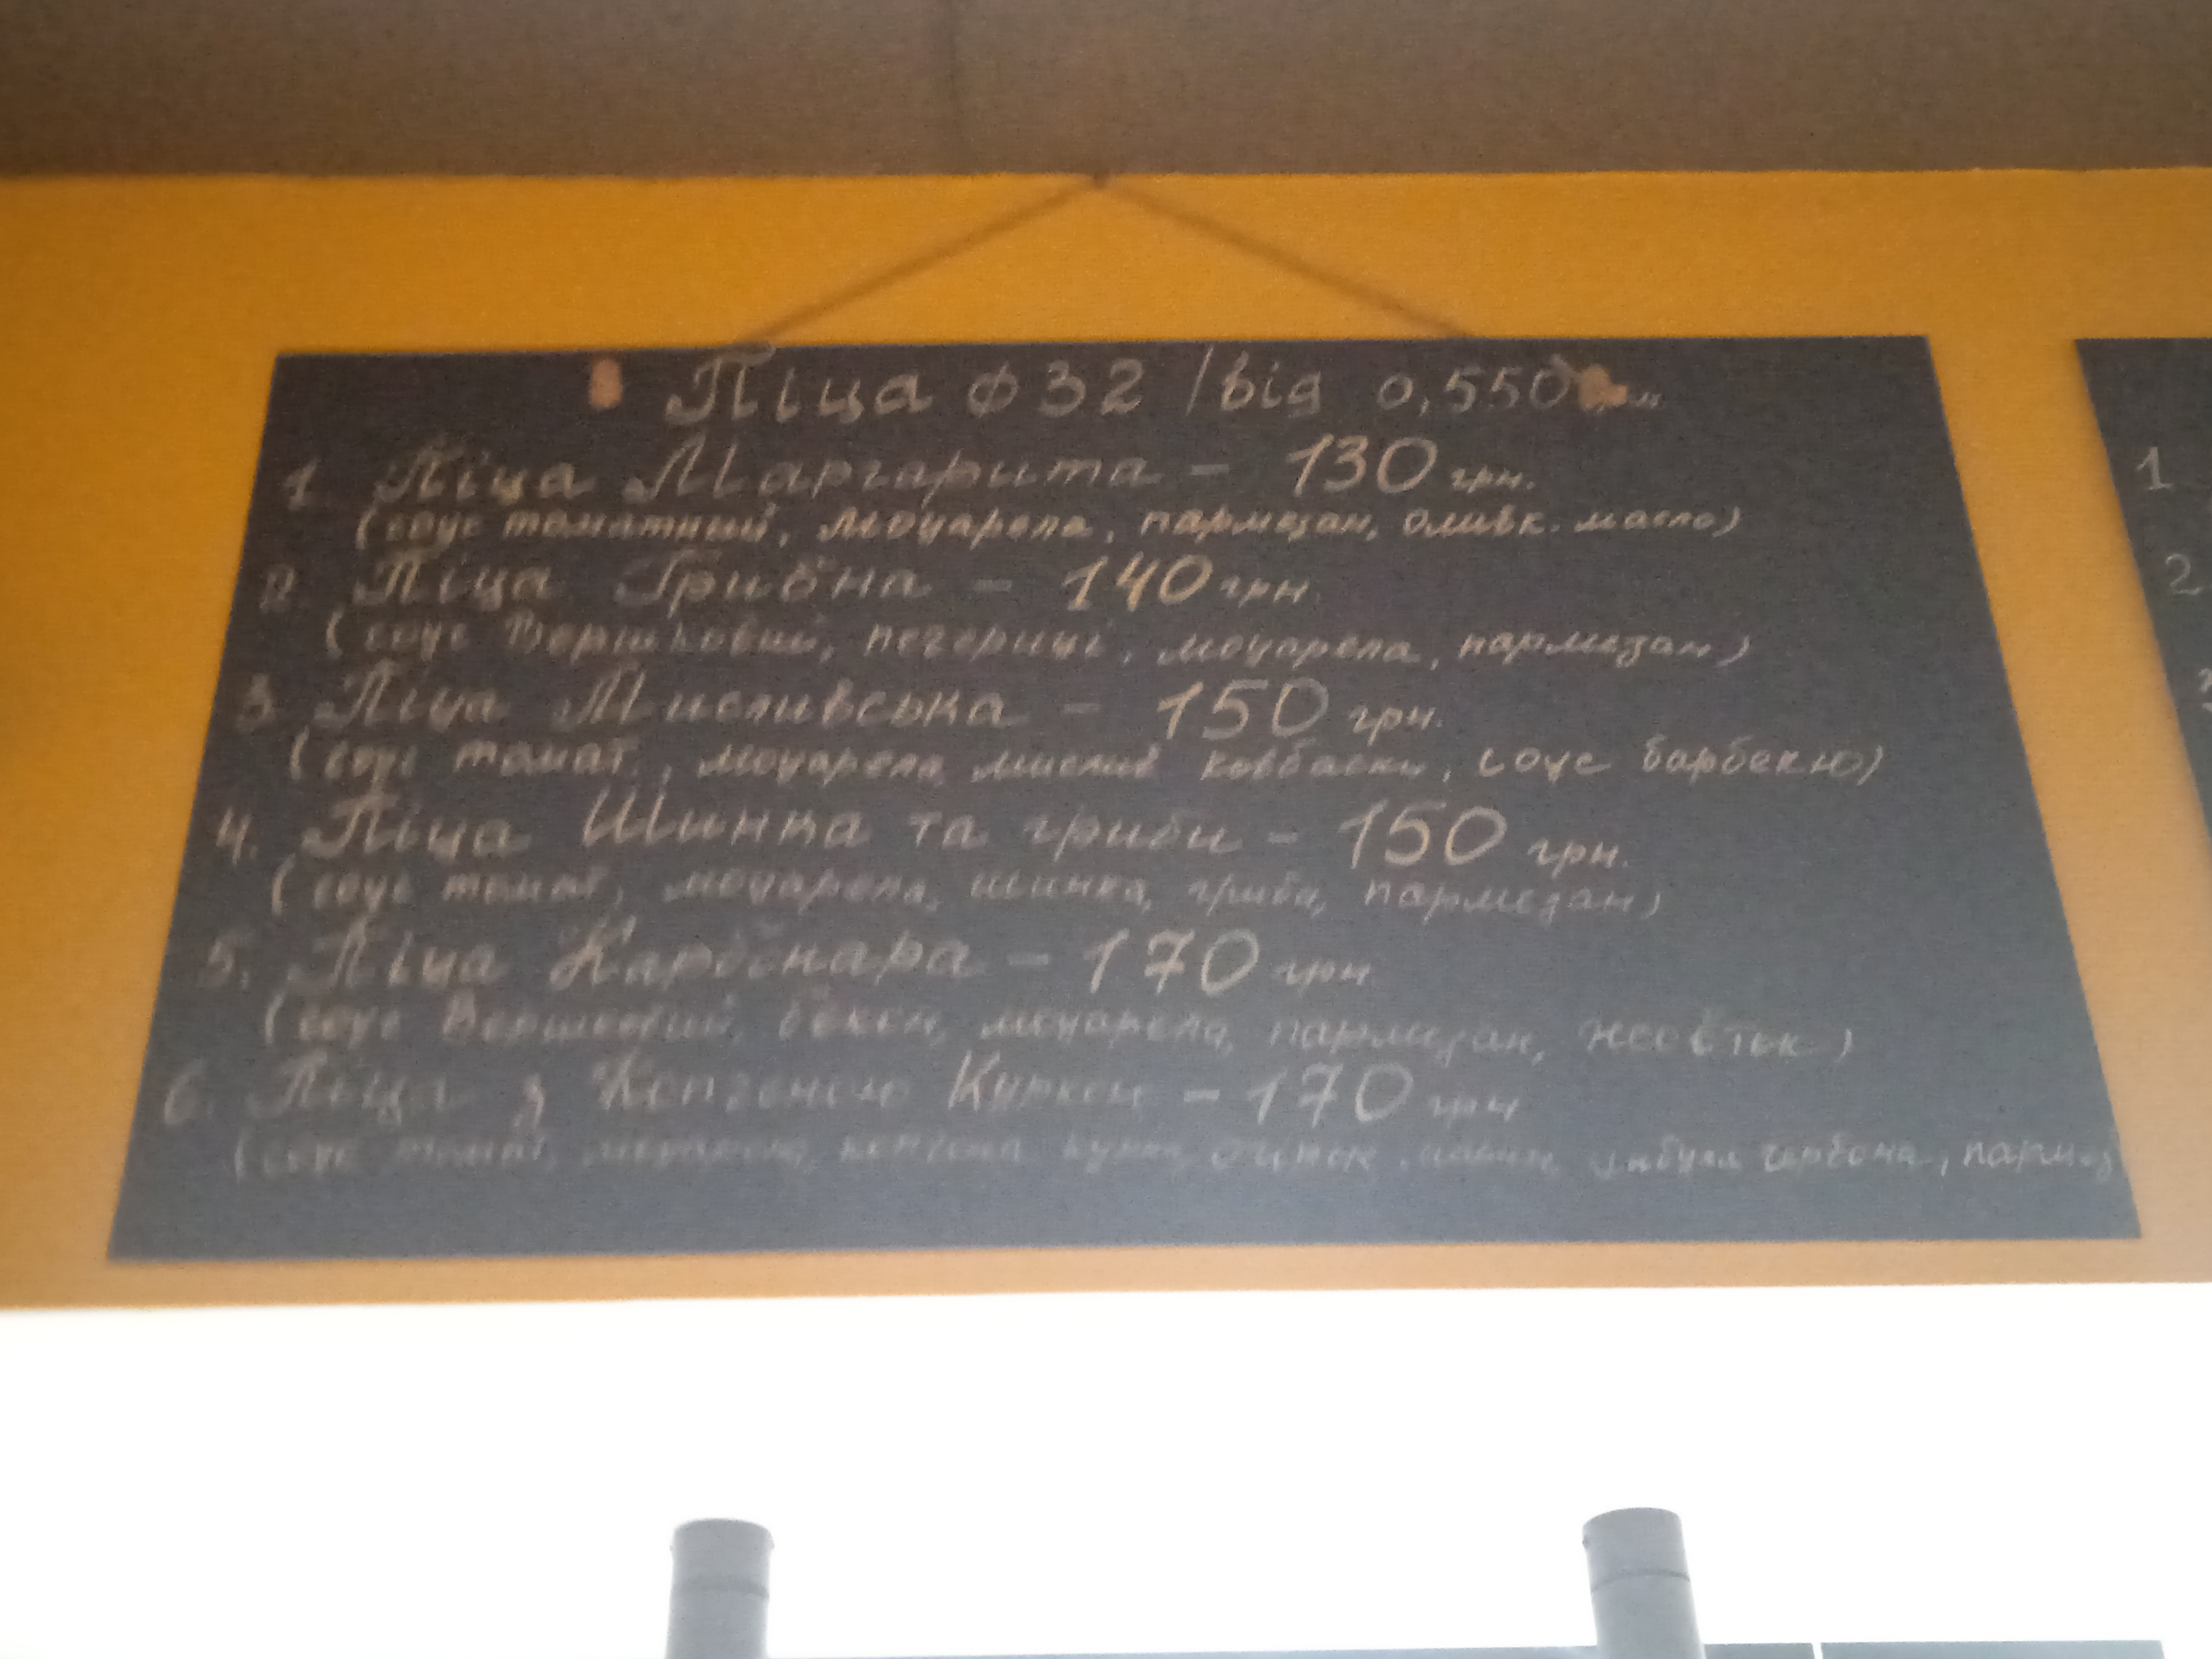 Піца ⌀32 / від 0,550
1 Піца Маргарита - 130 грн.
(соус томатний, моцарела, пармезан, оливк. масло)
2. Піца Грибна - 140 грн.
(соус Вершковий, печериці, моцарела, пармезан)
3 Піца Мисливська - 150 грн.
(соус томат., моцарела, мислив ковбаски, соус барбекю)
4. Піца Шинка та гриби - 150 грн.
(соус томат, моцарела, шинка, гриби, пармезан)
5. Піца Карбонара - 170 грн.
(соус Вершковий, бекон, моцарела, пармезан, жовток)
6. Піца з Копченою Куркою - 170 грн
(соус томат, моцарела, копчена курка, цибуля червона, парм
1
2